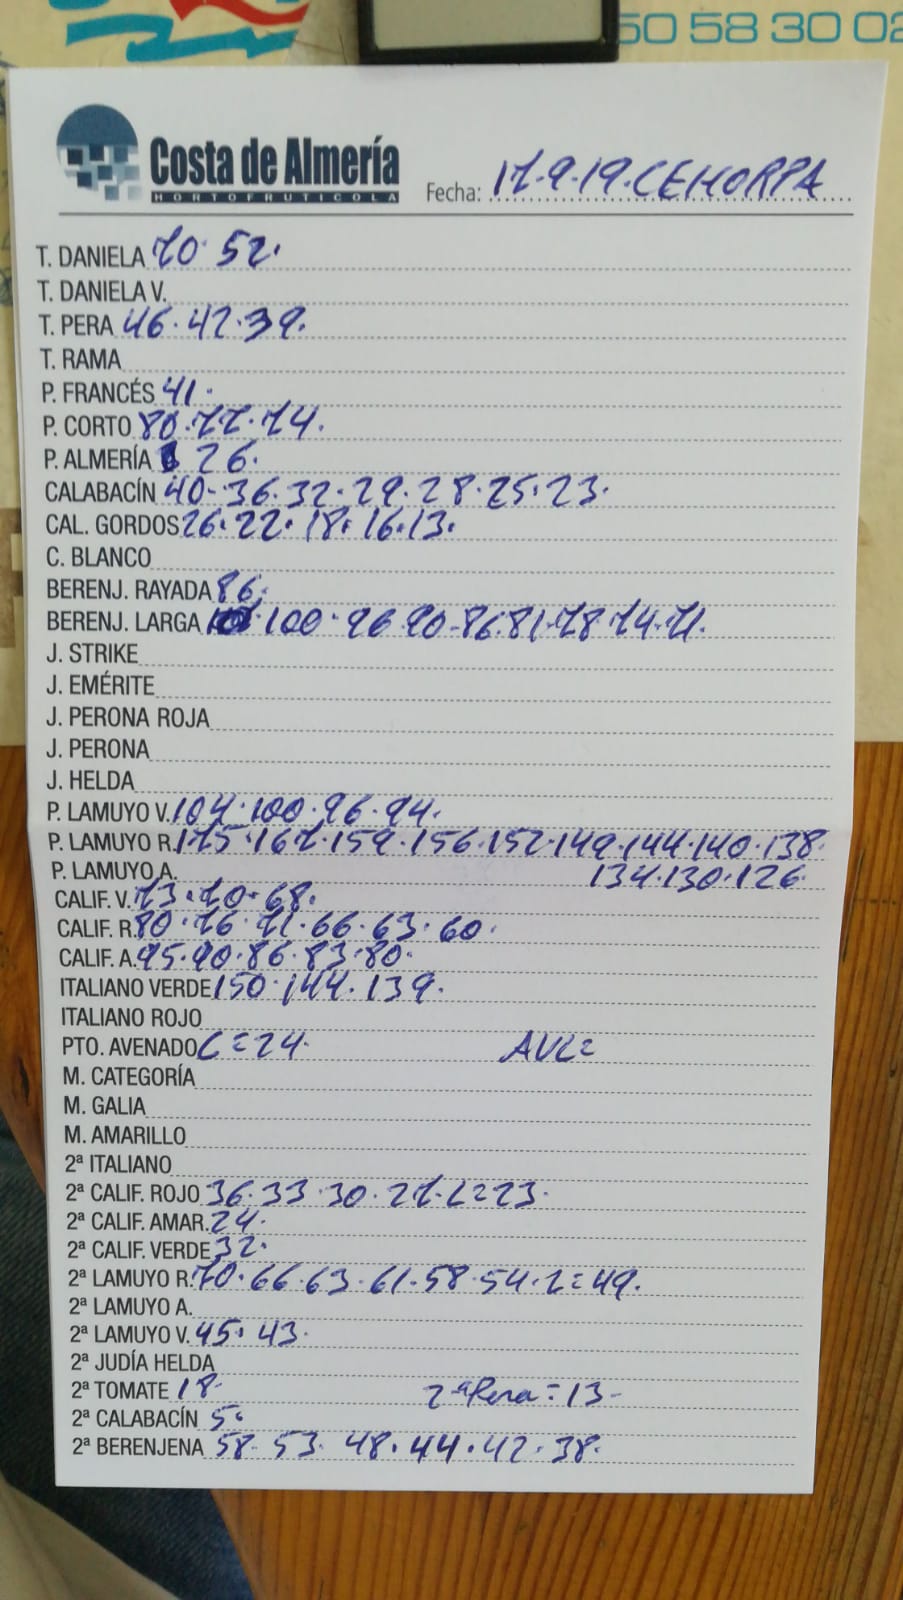 50 58 30 02
Costa de Almería
HORTOFRUTICOLA
Fecha: 17.9.19.CEHORPA
T. DANIELA 70. 52.
T. DANIELA V.
T. PERA 46.42.39.
T. RAMA
P. FRANCÉS 41.
P. CORTO 80.77.74.
P. ALMERÍA 26.
CALABACÍN 40-36.32.29.28.25.23.
CAL. GORDOS 26.22.18.16.13.
C. BLANCO
BERENJ. RAYADA 86.
BERENJ. LARGA 100.96.90-86.81.78.74.71.
J. STRIKE
J. EMÉRITE
J. PERONA ROJA
J. PERONA
J. HELDA
P. LAMUYO V. 104.100.96.94.
P. LAMUYO R. 175.167.159.156.152.149.144.140.138.
P. LAMUYO A. 134.130.126
CALIF. V. 73.70.68.
CALIF. R. 80.76.71.66.63.60.
CALIF. A. 95.90.86.83.80.
ITALIANO VERDE 150.144.139.
ITALIANO ROJO
PTO. AVENADO C=24.
M. CATEGORÍA
M. GALIA
M. AMARILLO
2ª ITALIANO
2ª CALIF. ROJO 36.33.30.27.L=23.
2ª CALIF. AMAR. 24.
2ª CALIF. VERDE 32.
2ª LAMUYO R. 70.66.63.61.58.54.L=49.
2ª LAMUYO A.
2ª LAMUYO V. 45.43.
2ª JUDÍA HELDA
2ª TOMATE 18. 2ª Pera=13-
2ª CALABACÍN 5.
2ª BERENJENA 58.53.48.44.42.38.